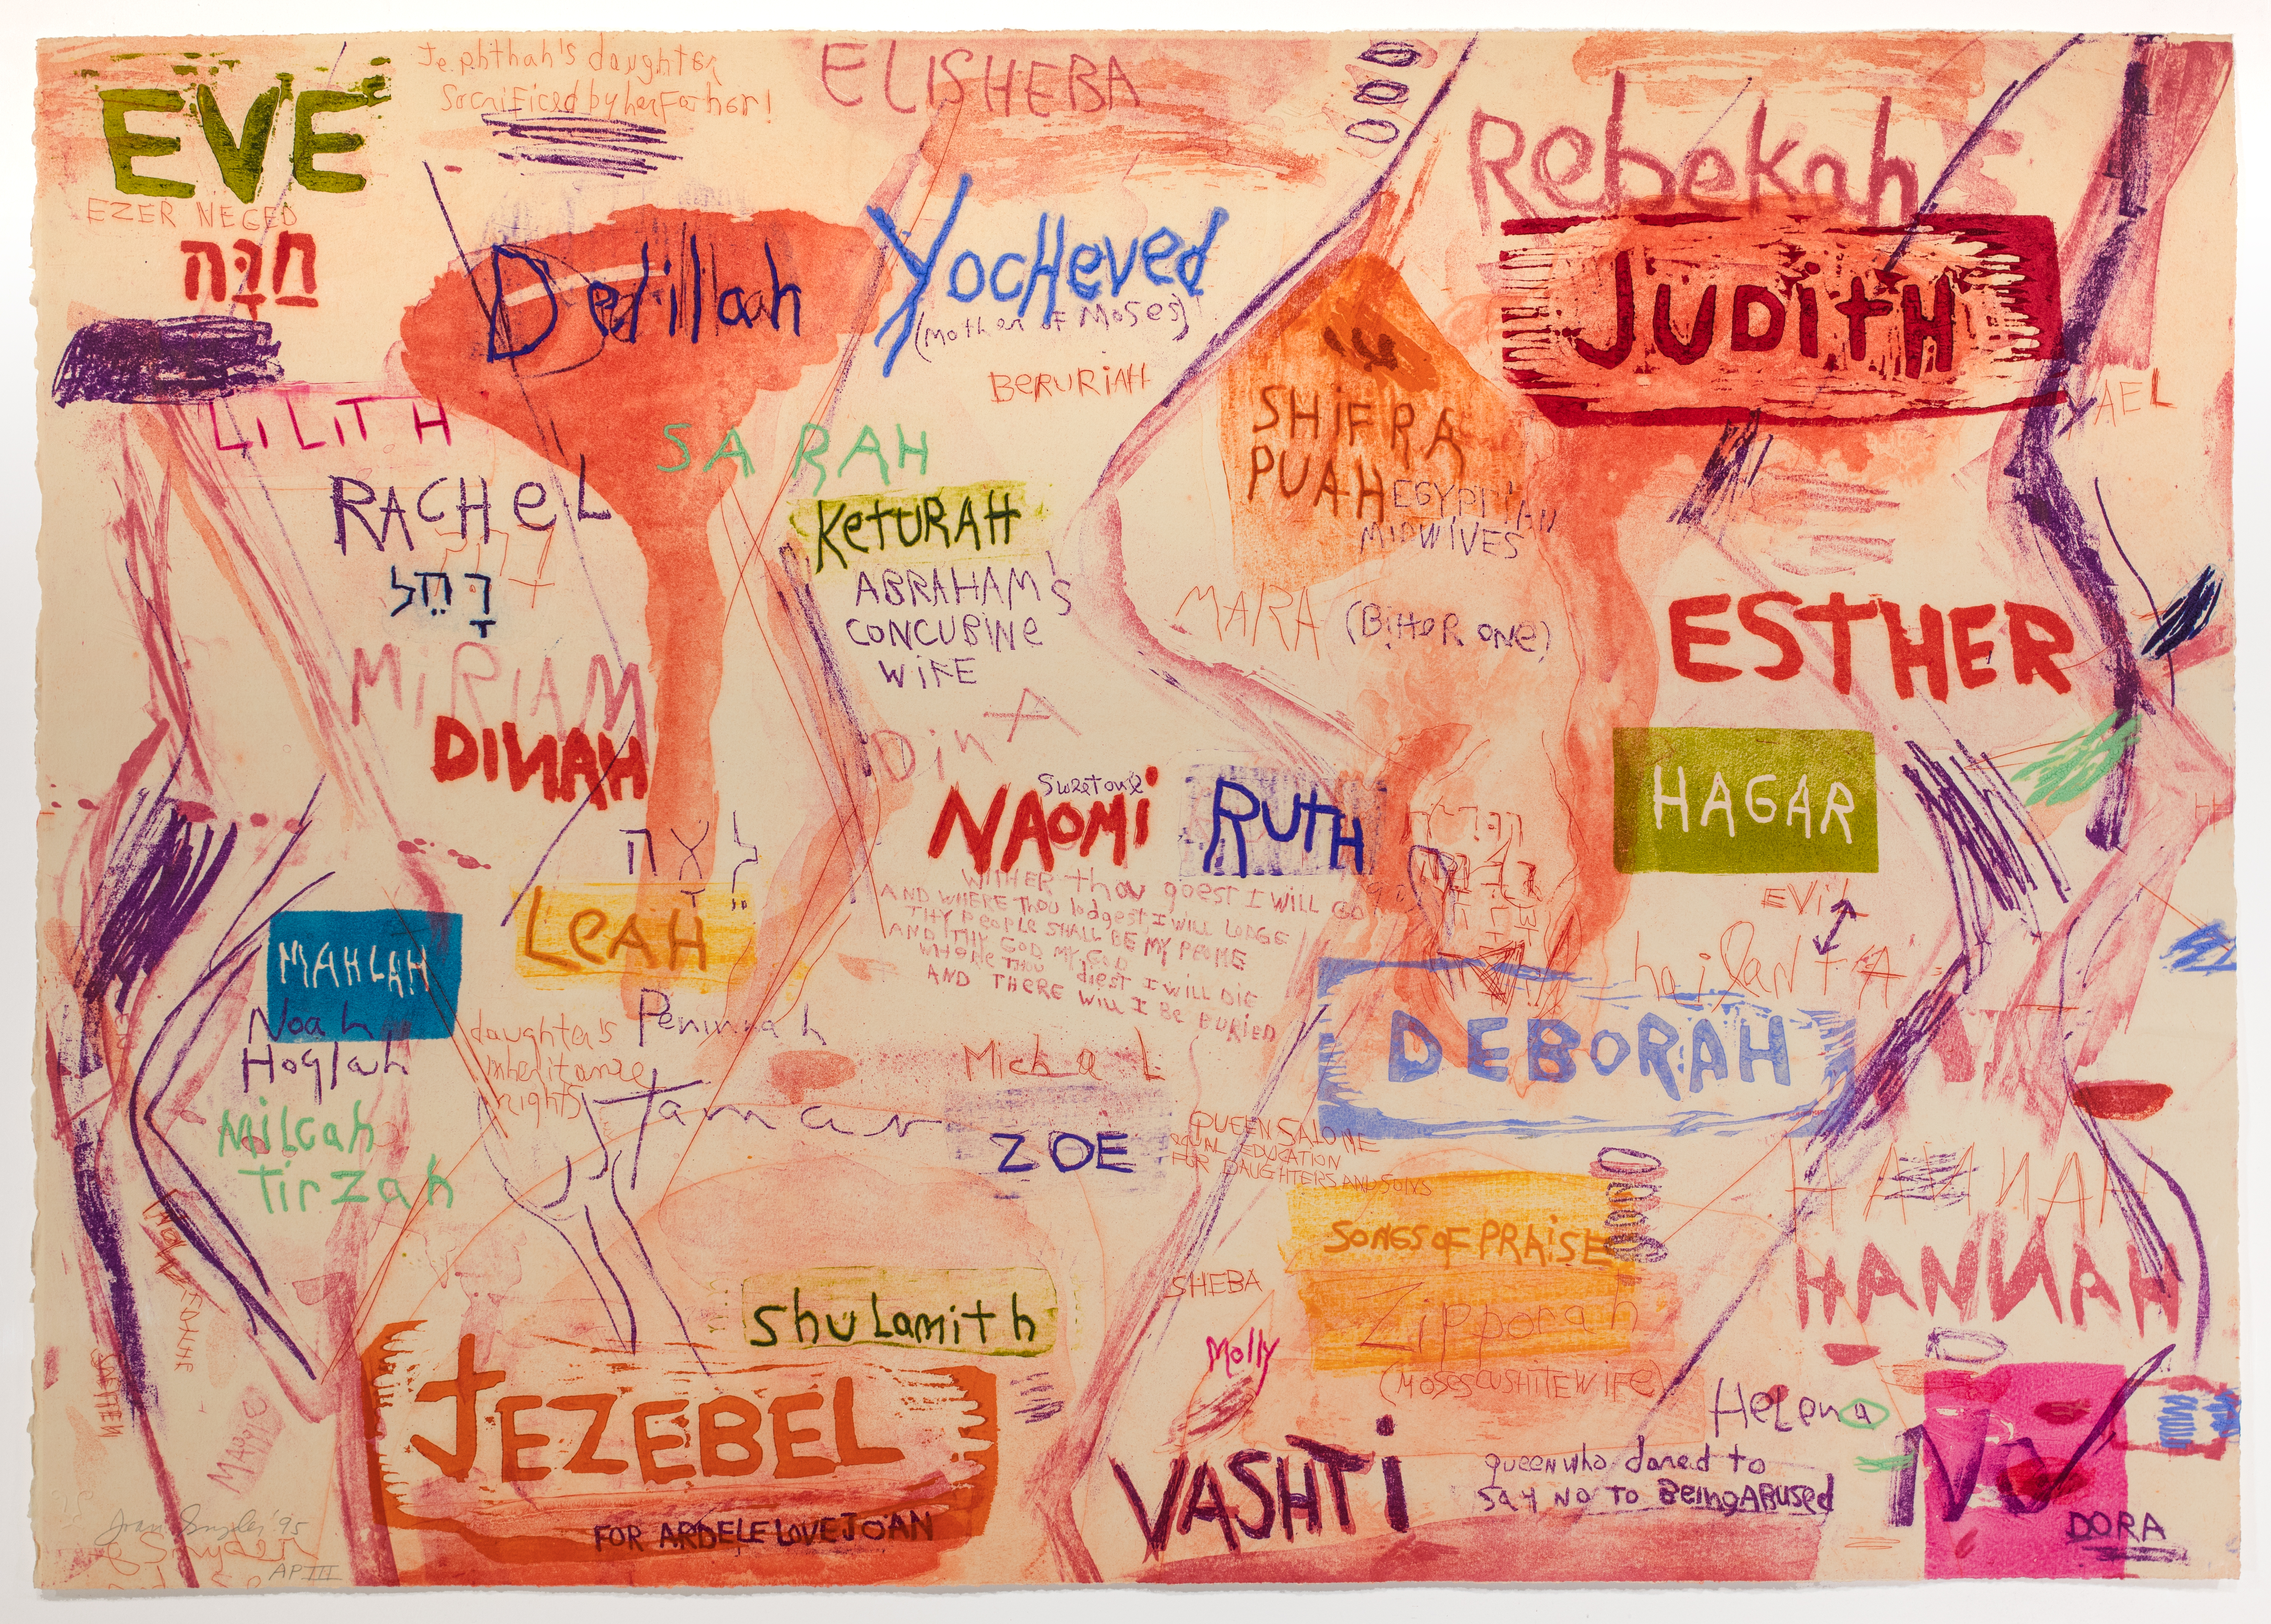 EVE
Jephthah's daughter
Sacrificed by her Father!
ELISHEBA
Rebekah
EZER NEGED
חַוָּה
Delillah
Yocheved
(Mother of Moses)
JUDITH
BERURIAH
YAEL
LILITH
SARAH
SHIFRA
PUAH
EGYPTIAN
MIDWIVES
RACHEL
רָחֵל
KeTURAH
ABRAHAM'S
CONCUBINE
WIFE
MARA
(BITTER ONE)
ESTHER
MIRIAM
DINAH
DinA
Sweet one
NAOMI
RUTH
HAGAR
לֵאָה
LEAH
WITHER thou goest I WILL GO
AND WHERE Thou lodgest I WILL LODGE
THY PEOPLE SHALL BE MY PEOPLE
AND THY GOD MY GOD
WHERE THOU diest I WILL DIE
AND THERE WILL I BE BURIED
EVIL
MAHLAH
Noah
Hoglah
Milcah
Tirzah
daughter's
inheritance
rights
Peninnah
Michal
DEBORAH
Tamar
ZOE
QUEEN SALOME
EQUAL EDUCATION
FOR DAUGHTERS AND SONS
HANNAH
SONGS OF PRAISE
HANNAH
SHEBA
Zipporah
(MOSES CUSHITE WIFE)
Shulamith
Molly
JEZEBEL
FOR ARDELE LOVE JOAN
Helena
VASHTI
queen who dared to
SAY NO TO BeingABUSed
NO
DORA
MAGGIE
Joan Snyder '95
AP III